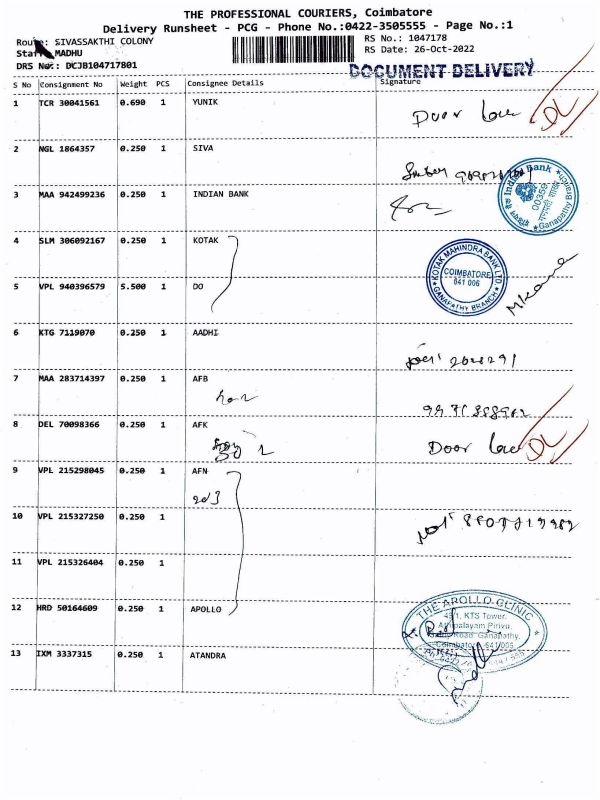 THE PROFESSIONAL COURIERS, Coimbatore
Delivery Runsheet - PCG - Phone No.:0422-3505555 - Page No.:1
Route: SIVASSAKTHI COLONY
RS No.: 1047178
Staff: MADHU
RS Date: 26-Oct-2022
DRS No.: DCJB104717801
DOCUMENT DELIVERY
S No Consignment No Weight PCS Consignee Details Signature
1 TCR 30041561 0.690 1 YUNIK
Door Lock DL
2 NGL 1864357 0.250 1 SIVA
3 MAA 942499236 0.250 1 INDIAN BANK
Indian Bank
00359
Ganapathy Branch
4 SLM 306092167 0.250 1 KOTAK
KOTAK MAHINDRA BANK LTD
COIMBATORE
641 006
GANAPATHY BRANCH
5 VPL 940396579 5.500 1 DO
6 KTG 7119070 0.250 1 AADHI
7 MAA 283714397 0.250 1 AFB
8 DEL 70098366 0.250 1 AFK
Door Lock DL
9 VPL 215298045 0.250 1 AFN
10 VPL 215327250 0.250 1
11 VPL 215326404 0.250 1
12 HRD 50164609 0.250 1 APOLLO
THE APOLLO CLINIC
KTS Tower,
Road, Ganapathy,
Coimbatore - 641006
13 IXM 3337315 0.250 1 ATANDRA